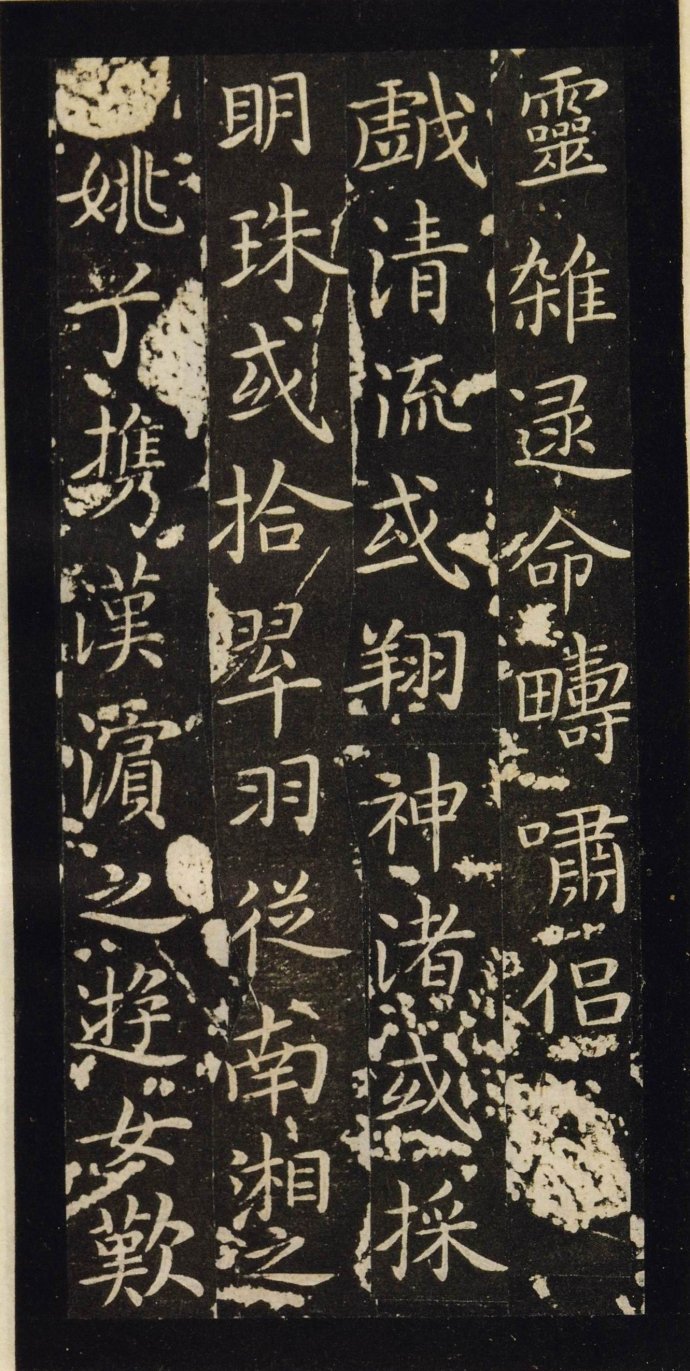 靈雜遝命疇嘯侶
戲清流或翔神渚或採
明珠或拾翠羽從南湘之
姚兮攜漢濱之遊女歎